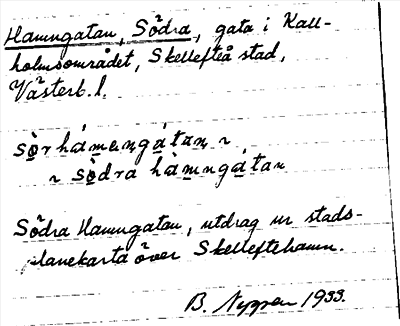 Hamngatan, Södra, gata i Kall-
holmsområdet, Skellefteå stad,
Västerb. l.
sørhámangátan ~
~ sødra hàmngátan
Södra Hamngatan, utdrag ur stads-
planekarta över Skelleftehamn.
B. 1933.